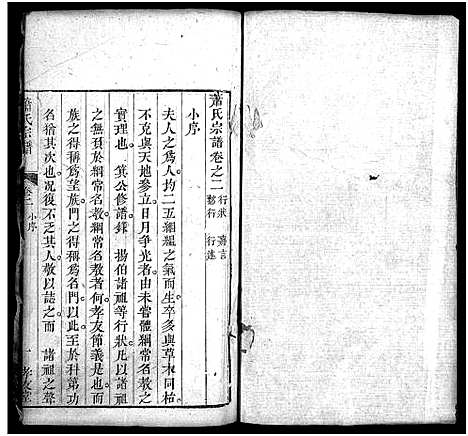 蕭氏宗譜卷之二 行狀 嘉言
懿行 行述
小序
夫人之為人均二五絪縕之氣而生卒多與草木同枯
不克與天地參立日月爭光者由未嘗體綱常名教之
實理也箕公修譜錄 揚伯諸祖等行狀凡以諸祖
之無忝於綱常名教綱常名教者何孝友節義是也而
族之得稱為望族門之得稱為名門以此至於科第功
名猶其次也況後不乏其人敬以誌之而 諸祖之聲
蕭氏宗譜
卷二 小序
一 孝友堂